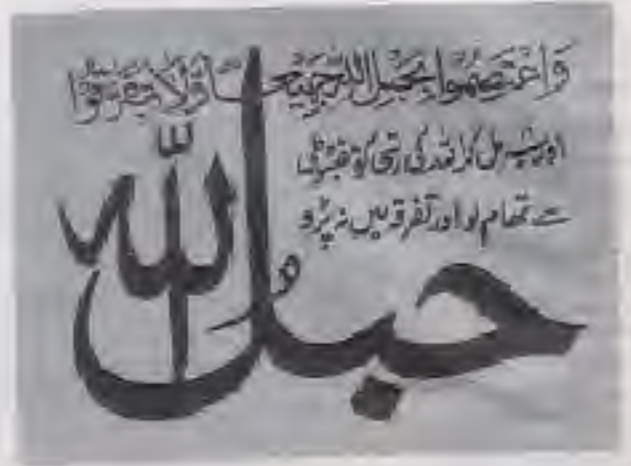 وَاعْتَصِمُوا بِحَبْلِ اللّٰهِ جَمِیْعًا وَّلَا تَفَرَّقُوْا
اور سب مل کر اللہ کی رسی کو مضبوطی
سے تھام لو اور تفرقہ میں نہ پڑو
حبلُ اللّٰہ